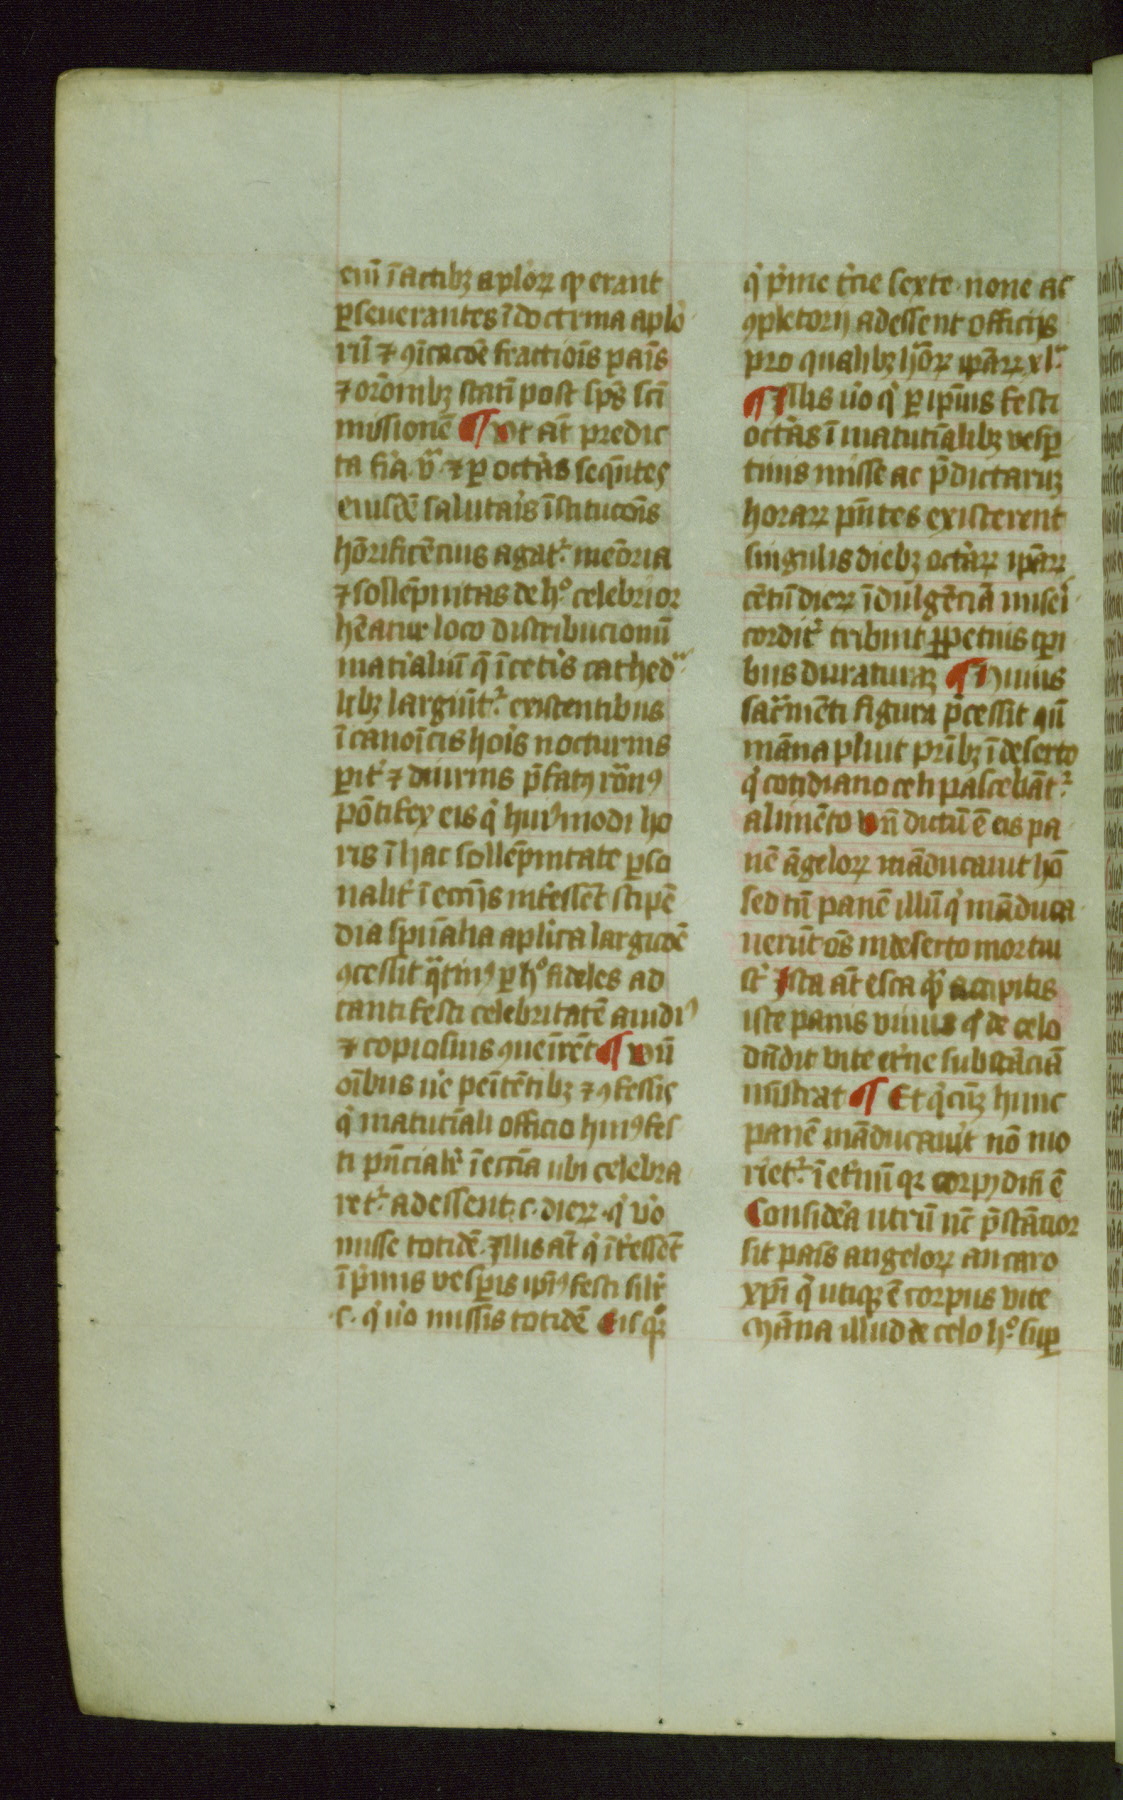 enī ī actibꝫ aplōꝝ qͥ erant
ꝑseuerantes ī doctrina aplo
rū ⁊ ꝯīcacōe fractiōis panis
⁊ orōnibꝫ statī post sp̄s sc̄i
missionē ¶ Ut aūt predic
ta fīa vͣ ⁊ ꝑ octauas seqn̄tes
eiusdē salutaris īstitucōis
hōrificēcius agatᷣ memoria
⁊ sollēpnitas de hͦ celebrior
hēatur loco distribucionū
materialiū q̄ ī cetis cathedͣ
libꝫ largiūtᷣ existentibus
ī canōicis horis nocturnis
ꝑitᷣ ⁊ diurnis p̄fatꝰ rōnꝰ
pōtifex eis qͥ huiꝰmodi ho
ris ī hac sollēpnitate ꝑso
nalitᷣ ī eccīijs intessent stipē
dia spūalia aplica largicōe
ꝯcessit qͣtinꝰ ꝑ hͦ fideles ad
tanti festi celebritatē auidiꝰ
⁊ copiosius ꝯueirent ¶ Un̄
oībus ue penitētibꝫ ⁊ ꝯfessis
qͥ matutīali officio huiꝰ fes
ti pn̄cialitᷣ ī eccīa ubi celebra
retᷣ adessent .c. dieꝝ qͥ vͦo
misse totidē Illis aūt qͥ īteressēt
ī pͥmis vesꝑis ipīꝰ festi silr̄
.c. qͥ uͦo missis totidē Eis qͦꝫ
qͥ pͥme tͥcie sexte none ac
ꝯpletorij adessent officijs
pro qualibꝫ hōꝝ ipāꝝ xlͣ
¶ Illis uͦo qͥ ꝑ ipīus festi
octauas ī matutīalibꝫ vesꝑ
tinis misse ac p̄dictaruꝫ
horaꝝ pn̄tes existerent
singulis diebꝫ octāꝝ ipāꝝ
cētū dieꝝ īdulgēciā miseri
corditᷣ tribuit ꝑpetuis tꝑi
bus duraturaꝫ ¶ Huius
sacͣmēti figura p̄cessit qn̄
māna pluit pr̄ibꝫ ī deserto
qͥ cotidiano celi pascebātᷣ
alimēto Un̄ dictū ē eis pa
nē āgeloꝝ māducauit hō
sed tn̄ panē illū qͥ māduca
uerūt oēs in deserto mortui
sͭ Ista aūt esca quā accipitis
iste panis viuus qͥ de celo
dn̄dit vite et̄ne substāciā
mistrat ¶ Et qͥcūꝫ hunc
panē māducauit nō mo
rietᷣ ī et̄nū qꝛ corpꝰ dn̄i ē
Considera utrū nc̄ p̄stācior
sit panis angeloꝝ an caro
xp̄i qͥ utiqꝫ ē corpus vite
Māna illud de celo hͦ suꝑ